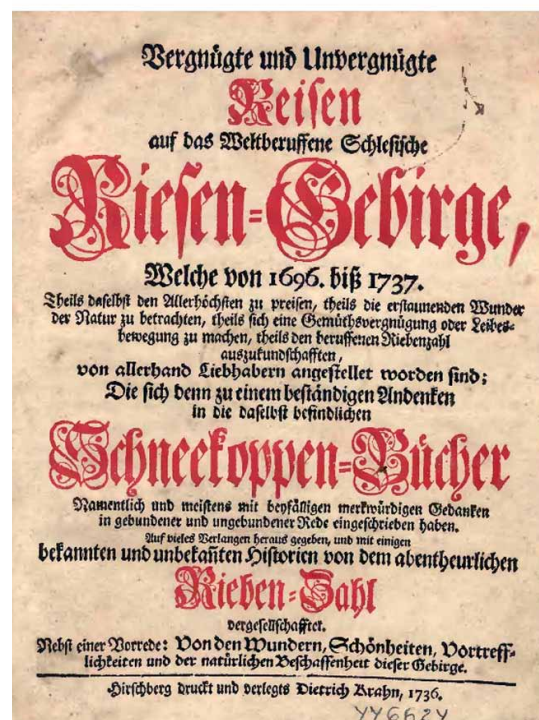 Vergnügte und Unvergnügte
Reisen
auf das Weltberuffene Schlesische
Riesen-Gebirge,
Welche von 1696. biß 1737.
Theils daselbst den Allerhöchsten zu preisen, theils die erstaunenden Wunder
der Natur zu betrachten, theils sich eine Gemüthsvergnügung oder Leibes-
bewegung zu machen, theils den beruffenen Riebenzahl
auszukundschafften,
von allerhand Liebhabern angestellet worden sind;
Die sich denn zu einem beständigen Andencken
in die daselbst befindlichen
Schneekoppen-Bücher
Namentlich und meistens mit beyfälligen merkwürdigen Gedanken
in gebundener und ungebundener Rede eingeschrieben haben.
Auf vieles Verlangen heraus gegeben, und mit einigen
bekannten und unbekan̄ten Historien von dem abentheurlichen
Rieben-Zahl
vergesellschafftet.
Nebst einer Vorrede: Von den Wundern, Schönheiten, Vortreff-
lichkeiten und der natürlichen Beschaffenheit dieser Gebirge.
Hirschberg druckt und verlegts Dietrich Krahn, 1736.